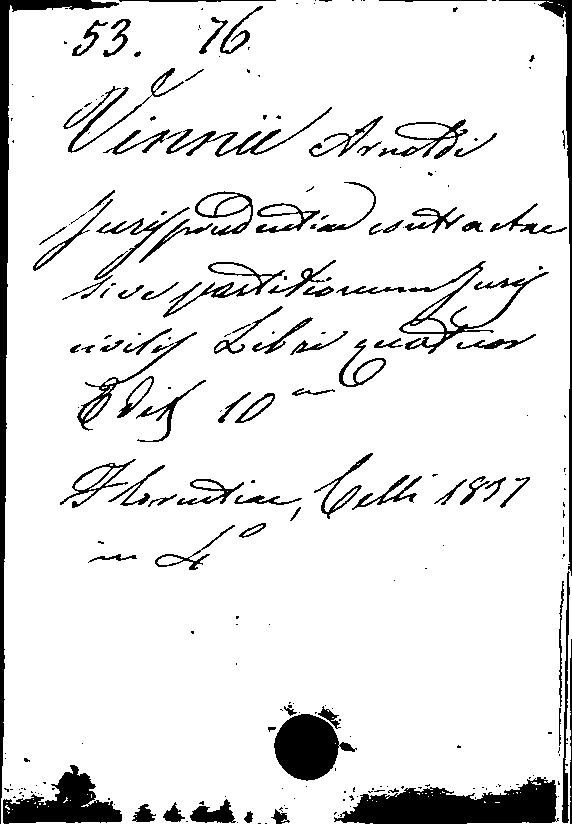 53. 76
Vinnii Arnoldi
Jurisprudentiae contractae
sive partitionum Juris
civilis Libri quatuor
Edit 10ª
Florentiae, Celli 1837
in 4º